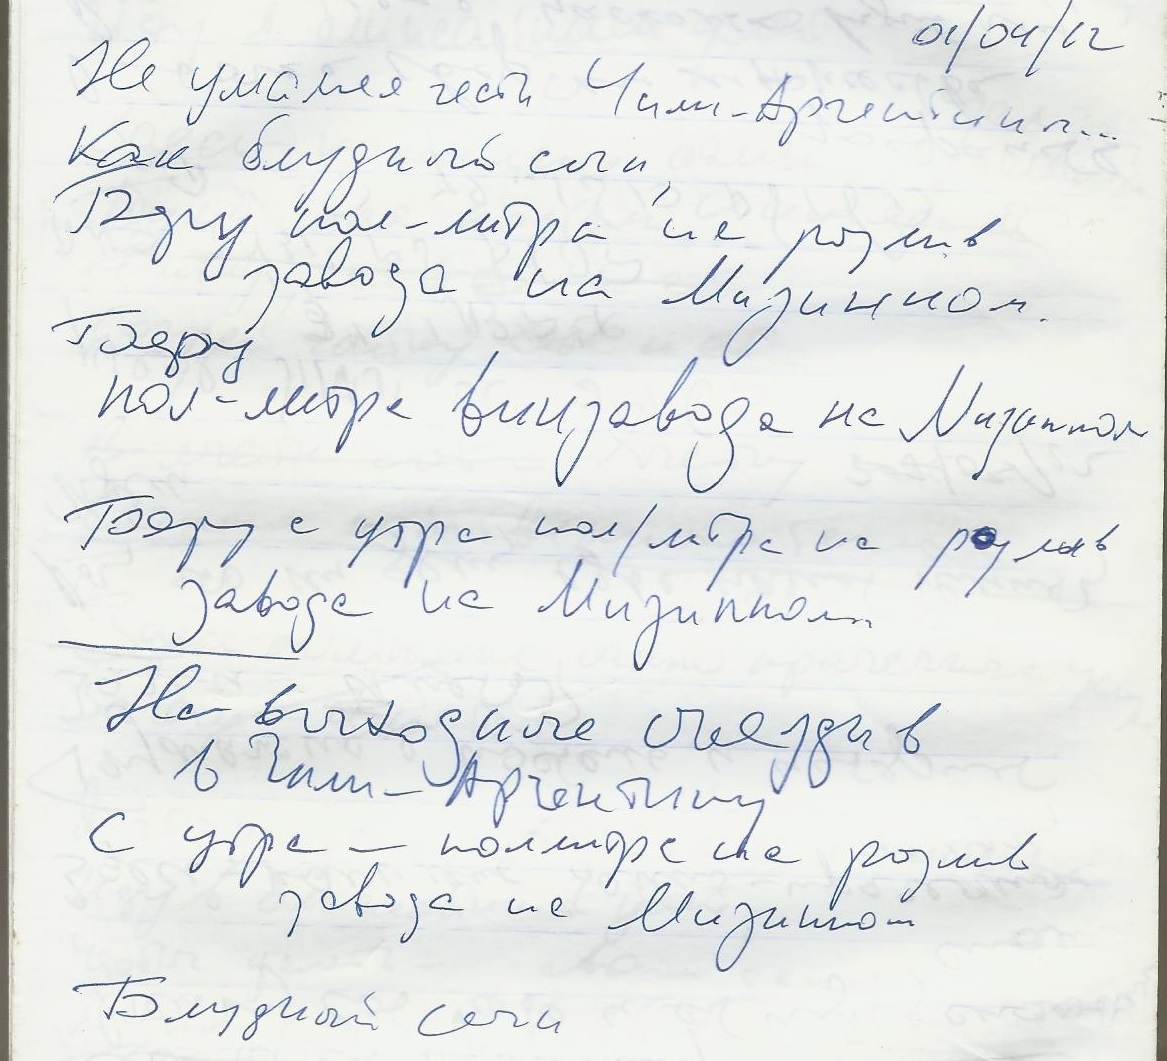 01/04/12
Не умаляя чести Чили-Аргентины...
Как блудный сын,
Беру пол-литра на розлив
завода на Мизинном.
Беру
пол-литра винзавода на Мизинном
Беру с утра пол/литра на розлив
завода на Мизинном
На выходные съездив
в Чили-Аргентину
С утра – поллитра на розлив
завода на Мизинном
Блудный сын